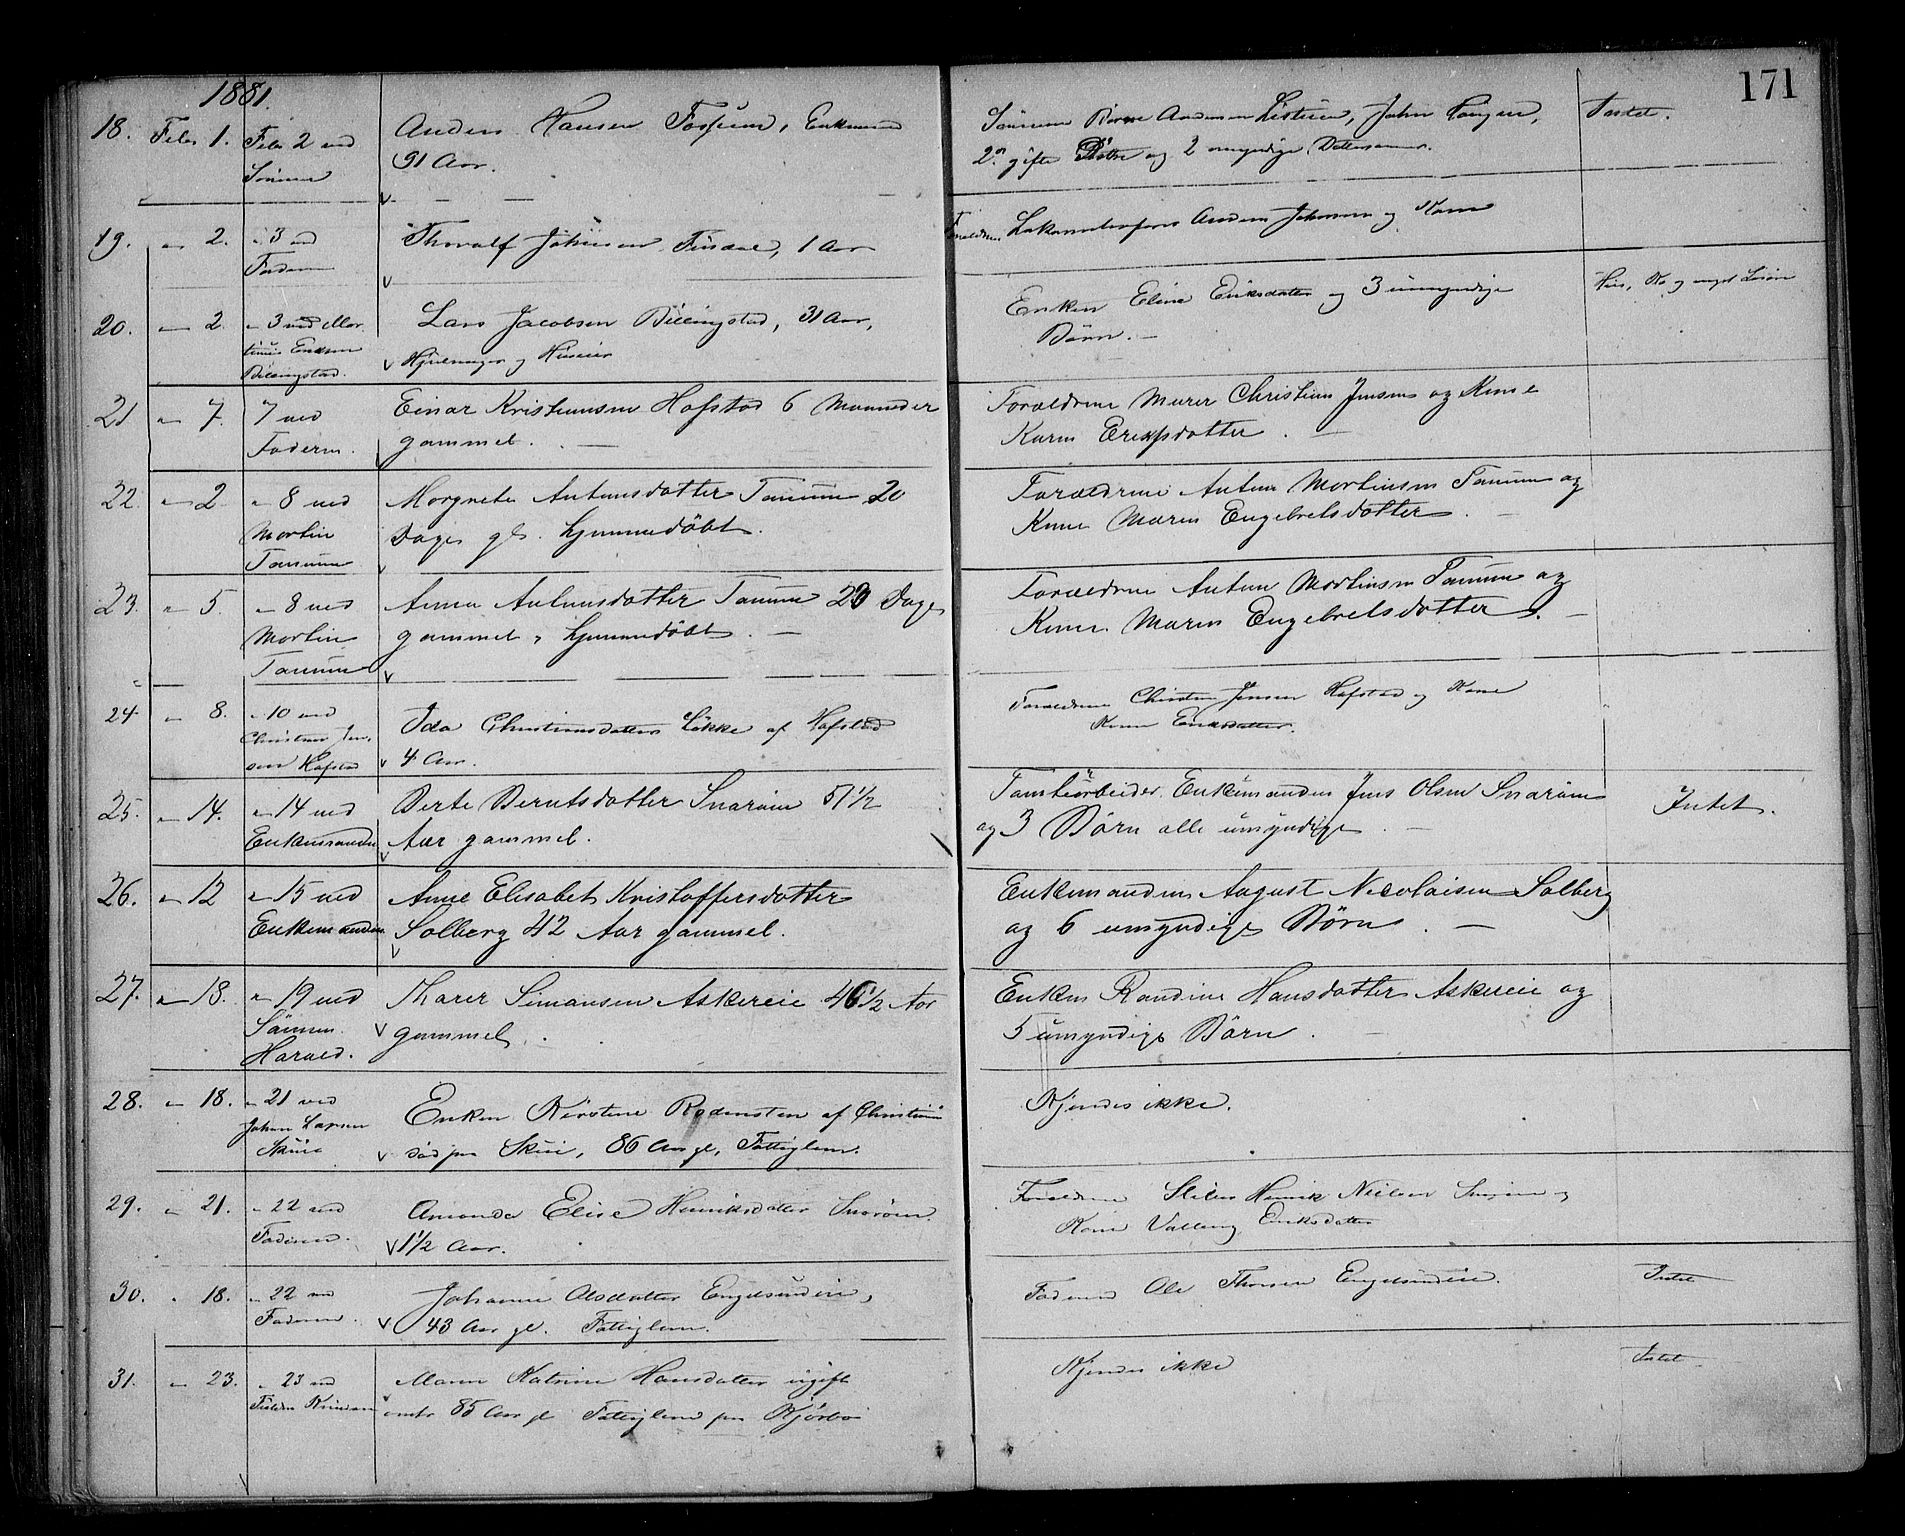 1881.
171
18. Febr 1. Febr 2 ved Sønnen
Anders Hansen Fossum, Enkemand
91 Aar.
Sønnerne Andersen John Haugen,
2 gifte Døtre og 2 umyndige Dattersønner.
Intet.
19. " 2. " 3 ved Faderen
Thoralf Johnsen 1 Aar
Forældrene Anders Johnsen og Kone
20. " 2. " 3 ved Mar
tinus Ericksen
Billingstad.
Lars Jacobsen Billingstad, 31 Aar,
Hjulmager og Huseier
Enken Eline Eriksdatter og 3 umyndige
Børn. —
Hus, Ko og noget Løsøre
21 " 7. 7 ved
Faderen.
Einar Kristiansen Hofstad 6 Maaneder
gammel. —
Forældrene Murer Christian Jensen og Kone
Karen Erixsdatter. —
22. " 2. " 8 ved
Martin
Tanum
Margrete Antonsdatter Tanum 20
Dage gl. hjemmedøbt.
Forældrene Anton Martinsen Tanum og
Kone Maren Engebretsdatter. —
23. " 5. " 8 ved
Martin
Tanum
Anna Antonsdatter Tanum 23 Dage
gammel, hjemmedøbt. —
Forældrene Anton Martinsen Tanum og
Kone Maren Engebretsdatter. —
24. " 8. " 10 ved
Christian Jen,
sen Hofstad
Ida Christiansdatter Løkke af Hofstad
4 Aar.
Forældrene Christian Jensen Hofstad og Kone
Karen Eriksdatter.
25. " 14. " 14 ved
Enkemanden
Berte Berntsdatter Snarøen 51 1/2
Aar gammel.
Tomtearbeider Enkemanden Jens Olsen Snarøen
og 3 Børn alle umyndige. —
Intet.
26. " 12 " 15 ved
Enkemanden
Anne Elisabet Kristoffersdatter
Solberg 42 Aar gammel.
Enkemanden August Nicolaisen Solberg
og 6 umyndige Børn. —
27. " 18. " 19 ved
Sønnen
Harald.
Tharer Simonsen Askereie 46 1/2 Aar
gammel.
Enken Randine Hansdatter Askereie og
5 umyndige Børn. —
28. " 18. " 21 ved
Johan Larsen
Skuie
Enken Kirstine Rodensten af Christiania
død paa Skui, 86 Aar gl, Fattiglem.
Kjendes ikke.
29. " 21. " 22 ved
Faderen.
Amanda Elise Henriksdatter Snarøen.
1 1/2 Aar.
Forældrene Henrik Nielsen Snarøen og
Kone Valborg Eriksdatter
30. " 18. " 22 ved
Faderen.
Johanne Olsdatter
43 Aar gl. Fattiglem.
Faderen Ole Thorsen
Intet
31. " 23. " 23 ved
Maren Katrine Hansdatter ugift
omtr 85 Aar gl Fattiglem paa Kjørbo
Kjendes ikke
Intet